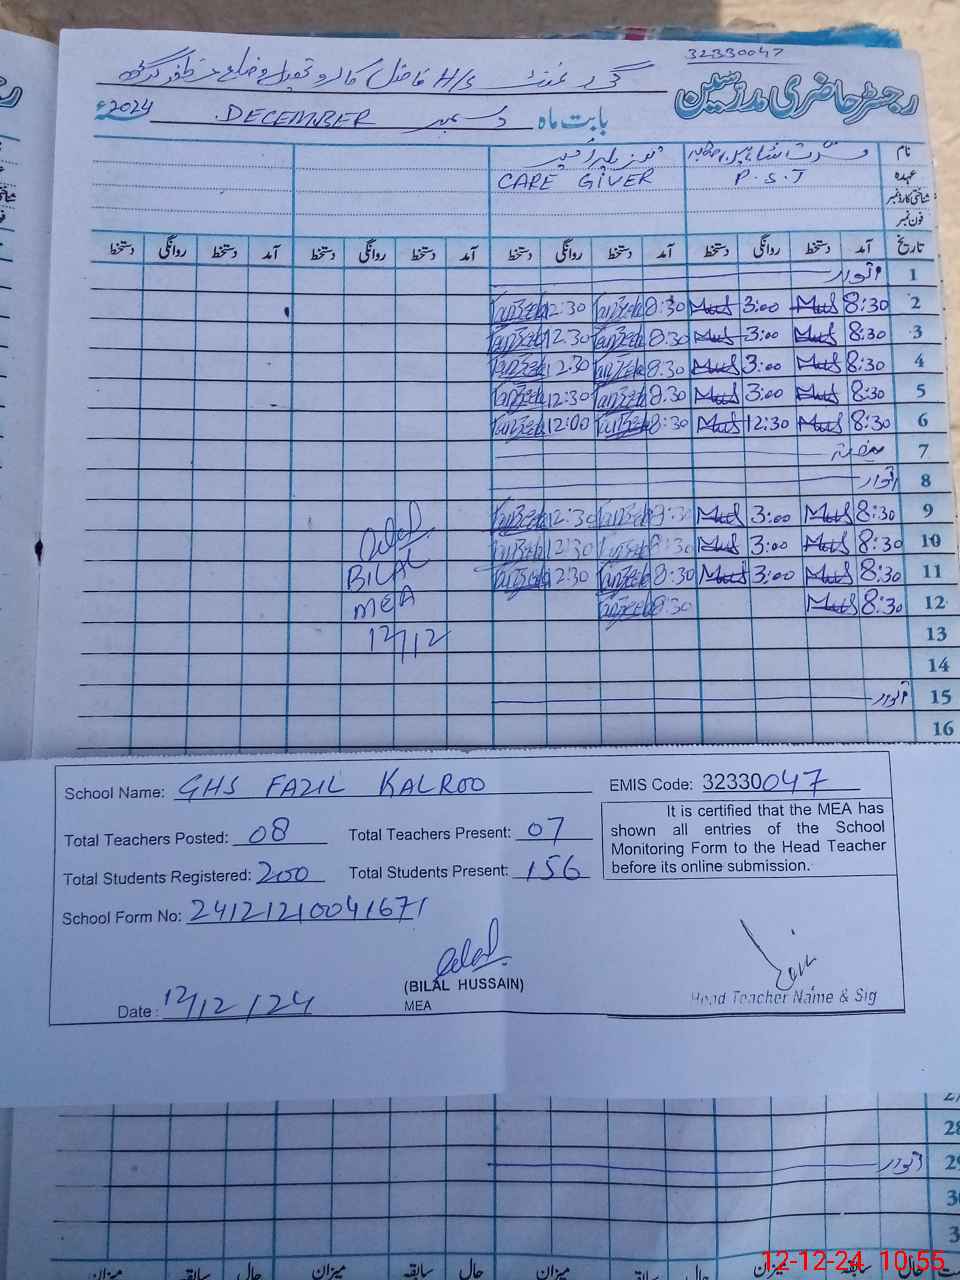 32330047
رجسٹر حاضری مدرسین
گورنمنٹ H/S فاضل کالرو تحصیل و ضلع مظفر گڑھ
بابت ماہ دسمبر DECEMBER 2024ء
نام
عہدہ P.S.T CARE GIVER
شناختی کارڈ نمبر
فون نمبر
تاریخ آمد دستخط روانگی دستخط آمد دستخط روانگی دستخط آمد دستخط روانگی دستخط آمد دستخط روانگی دستخط
1 اتوار
2 8:30 3:00 8:30 12:30
3 8:30 3:00 8:30 12:30
4 8:30 3:00 8:30 12:30
5 8:30 3:00 8:30 12:30
6 8:30 12:30 8:30 12:00
7 ہفتہ
8 اتوار
9 8:30 3:00 8:30 12:30
10 8:30 3:00 8:30 12:30
11 8:30 3:00 8:30 12:30
12 8:30 8:30
13
14
15 اتوار
16
BILAL
MEA
12/12
School Name: GHS FAZIL KALROO EMIS Code: 32330047
Total Teachers Posted: 08 Total Teachers Present: 07
Total Students Registered: 200 Total Students Present: 156
School Form No: 24121210041671
It is certified that the MEA has
shown all entries of the School
Monitoring Form to the Head Teacher
before its online submission.
(BILAL HUSSAIN)
MEA
Date: 12/12/24
Head Teacher Name & Sig
28
29 اتوار
30
میزان سابقہ حال میزان سابقہ حال میزان سابقہ حال میزان سابقہ حال
12-12-24 10:55